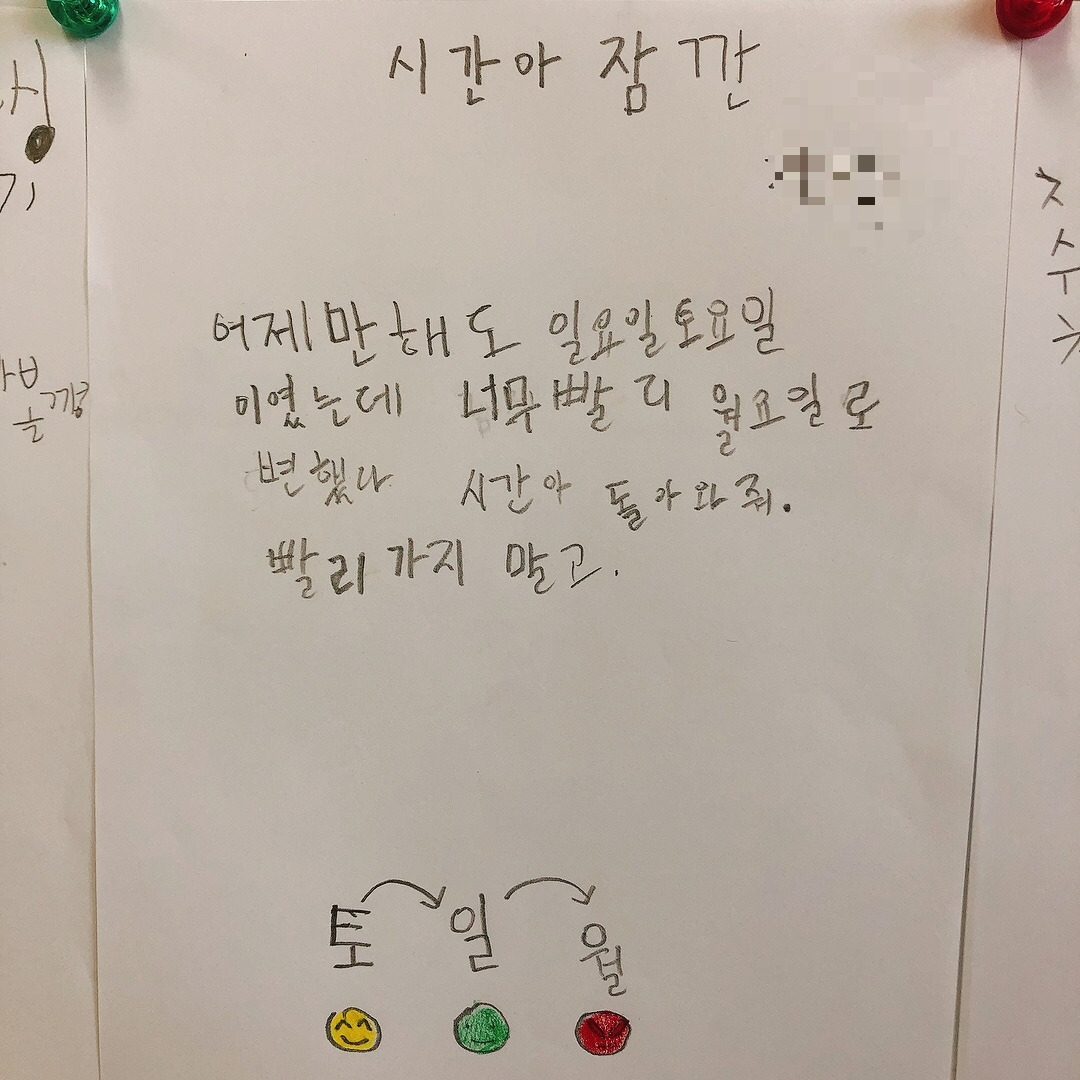 시간아 잠깐
어제만해도 일요일토요일
이였는데 너무빨리 월요일로
변했다 시간아 돌아와줘.
빨리가지 말고.
토 일 월